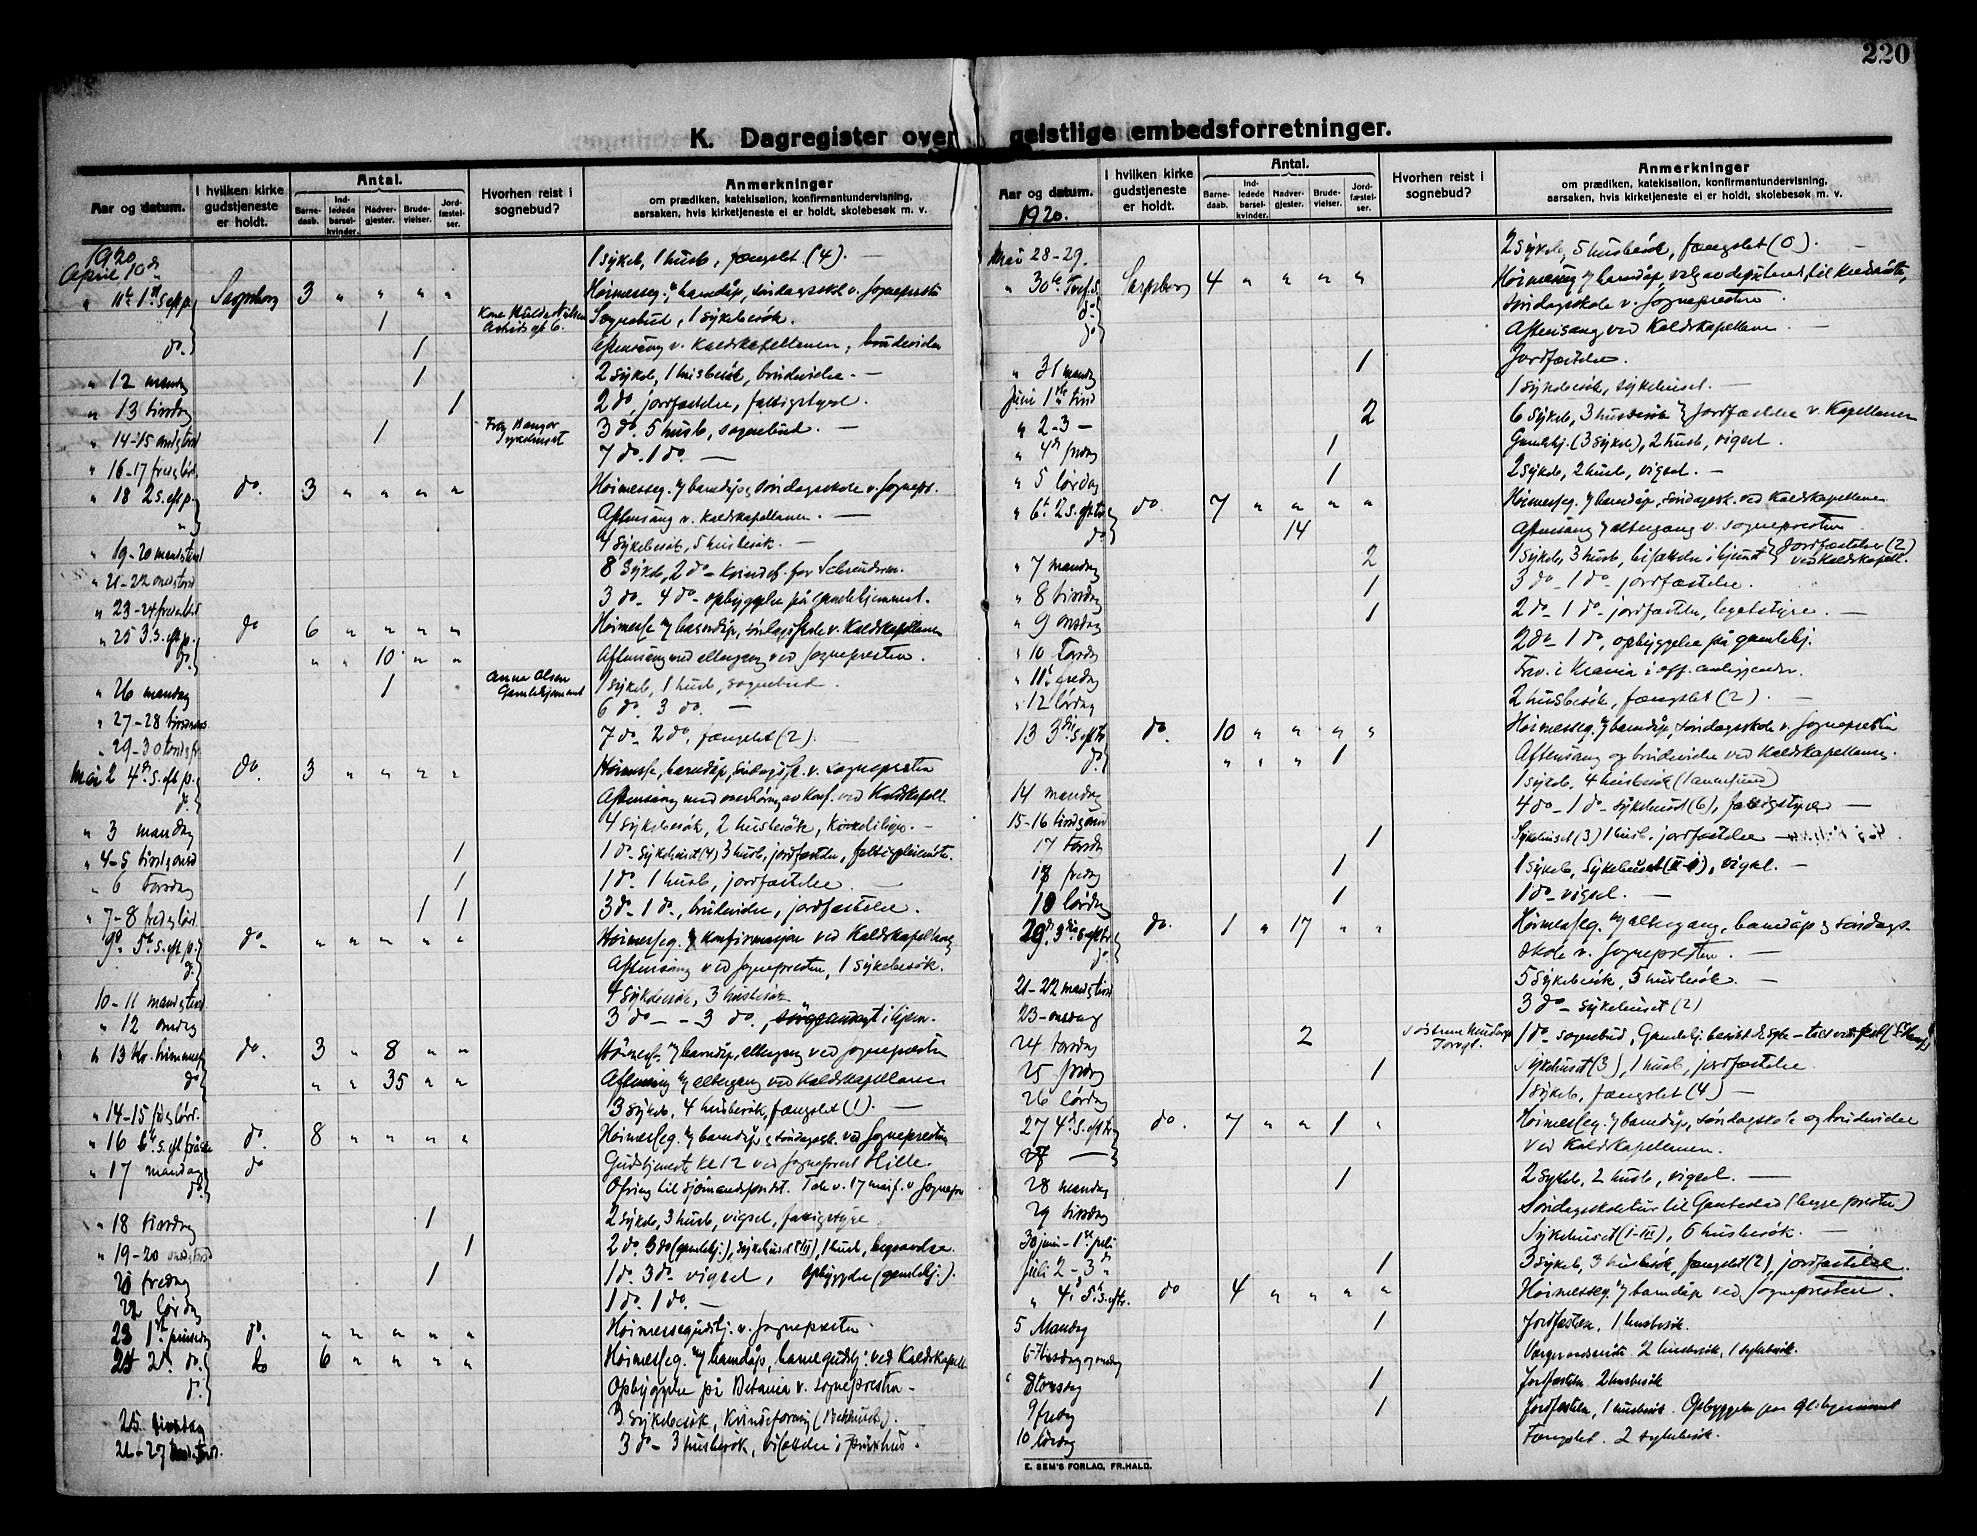 220
K. Dagregister over geistlige embedsforretninger.
Aar og datum.
I hvilken kirke gudstjeneste er holdt.
Antal.
Barne-daab.
Ind-ledede barsel-kvinder.
Nadver-gjester.
Brude-vielser.
Jord-fæstel-ser.
Hvorhen reist i sognebud?
Anmerkninger
om prædiken, katekisation, konfirmantundervisning,
aarsaken, hvis kirketjeneste ei er holdt, skolebesøk m. v.
1920
April 10de 1 sykeb, 1 husb, fængslet (4). —
" 11te 1ste S. eft. p. Sarpsborg 3 " " " " Høimesseg. m/ barndåp, søndagsskole v. Sognepresten
1 Sognebud, 1 sykebesøk.
do. 1 Aftensang v. Kaldskapellanen, brudevielse
" 12 mandag 1 2 sykeb, 1 husbesøk, brudevielse. —
" 13 tirsdag 1 2 do, jordfæstelse, fattigstyre.
" 14-15 onsd. og torsd 1 Sykehuset 3 do. 5 husb, sognebud. —
" 16-17 fred og lør. 7 do. 1 do. —
" 18 2 S. eft. p. do. 3 " " " " Høimesseg. m/ barndåp og søndagsskole v. Sognepr.
" Aftensang v. Kaldskapellanen. —
" 19-20 mand og tirsd 4 sykebesøk, 5 husbesøk. —
" 21-22 onsd og torsd 8 sykeb, 2 do -
" 23-24 fred og lørd 3 do - 4 do - opbyggelse på gamlehjemmet.
" 25 3 S. eft. p. do 6 " " " " Høimesse m/ barndåp, søndagsskole v. Kaldskapellanen
do. " " 10 " " Aftensang med altergang ved Sognepresten.
" 26 mandag 1 Anna Olsen Gamlehjemmet 1 sykeb, 1 husb, sognebud.
" 27-28 tirsd og onsd 6 do. 3 do. —
" 29-30 torsd og fr. 7 do - 2 do, fængslet (2).
Mai 2 4de S. eft. p. do. 3 " " " " Høimesse, barndåp, søndagssk. v. Sognepresten
do Aftensang med overhøring av konf. ved Kaldskapell.
" 3 mandag 4 sykebesøk, 2 husbesøk,
" 4-5 tirsd og onsd 1 1 do - sykehuset (4) 3 husb, jordfæstelse,
" 6 Torsdag 1 1 do. 1 husb, jordfæstelse. —
" 7-8 fred og lørd. 1 1 3 do - 1 do., brudevielse, jordfæstelse.
9de 5te S. eft. p. do - " " " " " Høimesseg. m/ konfirmasjon ved Kaldskapellanen
do Aftensang ved Sognepresten, 1 sykebesøk.
10-11 mand og tirsd 4 sykebesøk, 3 husbesøk
" 12 onsdag 3 do - - 3 do.,
" 13 Kr. himmelf. do. 3 " 8 " " Høimesse m/ barndåp, altergang ved Sognepresten
do " " 35 " " Aftensang m/ altergang ved Kaldskapellanen
" 14-15 fre og lørd. 3 sykeb, 4 husbesøk, fængslet (1). —
" 16 6te S. eft. påske do. 8 " " " " Høimesseg. m/ barndåp og søndagssk. ved Sognepresten
" 17 mandag do Gudstjeneste kl 12 ved Sogneprest Hille.
do. Ofring til Sjømandsfondet. Tale v. 17 maif. v Sognepr
" 18 tirsdag 1 2 sykeb, 3 husb, vigsel, fattigstyre
" 19-20 onsd og torsd 1 2 do. 3 do (gamlehj.), sykehuset (III), 1 husb, begravelse.
21 fredag 1 1 do. 3 do. vigsel, opbyggelse (gamlehj.).
22 lørdag 1 do. 1 do. —
23 1ste pinsedag do. " " " " " Høimessegudstj. v. Sognepresten
24 2den do. do 6 " " " " Høimesseg. m/ barndåp, barnegudstj. ved Kaldskapell
do. Opbyggelse på Betania v. Sognepresten -
25. tirsdag 3 sykebesøk, Kvindeforening.
26-27 onsd. torsd. 3 do - 3 husbesøk,
Aar og datum.
1920.
I hvilken kirke gudstjeneste er holdt.
Antal.
Barne-daab.
Ind-ledede barsel-kvinder.
Nadver-gjester.
Brude-vielser.
Jord-fæstel-ser.
Hvorhen reist i sognebud?
Anmerkninger
om prædiken, katekisation, konfirmantundervisning,
aarsaken, hvis kirketjeneste ei er holdt, skolebesøk m. v.
Mai 28-29. 2 sykeb, 5 husbesøk, fængslet (0). —
" 30te Tref. S. Sarpsborg 4 " " " " Høimesseg m/ barndåp, valg av deputerede til
do. søndagsskole v. Sognepresten
do Aftensang ved Kaldskapellanen —
" 31 mandag 1 Jordfæstelse.
Juni 1ste tirsd 1 sykebesøk, sykehuset. —
" 2-3 — 2 6 sykeb, 3 husbesøk jordfæstelse v. Kapellanen
" 4de fredag 1 Gamlehj. (3 sykeb), 2 husb, vigsel.
" 5 Lørdag 1 2 sykeb, 2 husb, vigsel. —
" 6te 2 S. eft. tr. do. 7 " " " " Høimesseg m/ barndåp, søndagssk. ved Kaldskapellanen
do 14 Aftensang m/ altergang v. Sognepresten
" 7 mandag 2 1 sykeb, 3 husb, jordfæstelser (2) ved Kaldskapell.
" 8 tirsdag 1 3 do - 1 do - jordfæstelse.
" 9 onsdag 1 2 do - 1 do - jordfæstelse, legatstyre. —
" 10 Torsdag 2 do - 1 do, opbyggelse på gamlehj.
" 11te fredag i off. anliggender.
" 12 lørdag 2 husbesøk, fængslet (2). —
13 3die S. eft. tr do. 10 " " " " Høimesseg. m/ barndåp, søndagsskole v. Sognepresten
do. " " " 1 Aftensang og brudevielse ved Kaldskapellanen.
14 mandag 1 sykeb. 4 husbesøk
15-16 tirsd og onsd 4 do - 1 do - sykehuset (6), fattigstyre —
17 torsdag 1 Sykehuset (3) 1 husb. jordfæstelse
18 fredag 1 1 sykeb, Sykehuset, vigsel. —
19 lørdag 1 1 do - vigsel. —
20de 3die S. eft. tr. do. 1 " 17 " " Høimesseg. m/ altergang, barndåp og søndags-
do skole v. Sognepresten. —
21-22 mand og tirsd 5 sykebesøk, 5 husbesøk —
23 - onsdag 3 do - sykehuset (2)
24 torsdag 2 1 do - sognebud,
25 fredag 1 Sykehuset (3), 1 husb, jordfæstelse.
26 lørdag 1 sykeb, fængslet (4) —
27 4de S. eft. tr. do. 7 " " 1 " Høimesseg. m/ barndåp, søndagsskole og brudevielse
27 — ved Kaldskapellanen.
28 mandag 1 2 sykeb, 2 husb, vigsel. —
29 tirsdag Søndagsskoletur til
30 juni - 1ste juli Sykehuset (I-III), 6 husbesøk. —
Juli 2-3 do 1 3 sykeb, 3 husbesøk, fængslet (2), jordfæstelse.
" 4de 5te S. e. tr. do 4 " " " " Høimesseg. m/ barndåp ved Sognepresten.
5 Mandag 1 Jordfæstelse, 1 husbesøk.
6-7 tirsdag og onsdag 2 husbesøk, 1 sykebesøk.
" 8 torsdag 1 Jordfæstelse. 2 husbesøk
9 fredag 1 Jordfæstelse, 1 husbesøk. Opbyggelse paa
10 lørdag Fængslet. 2 sykebesøk.
E. SEM'S FORLAG, FR.HALD.